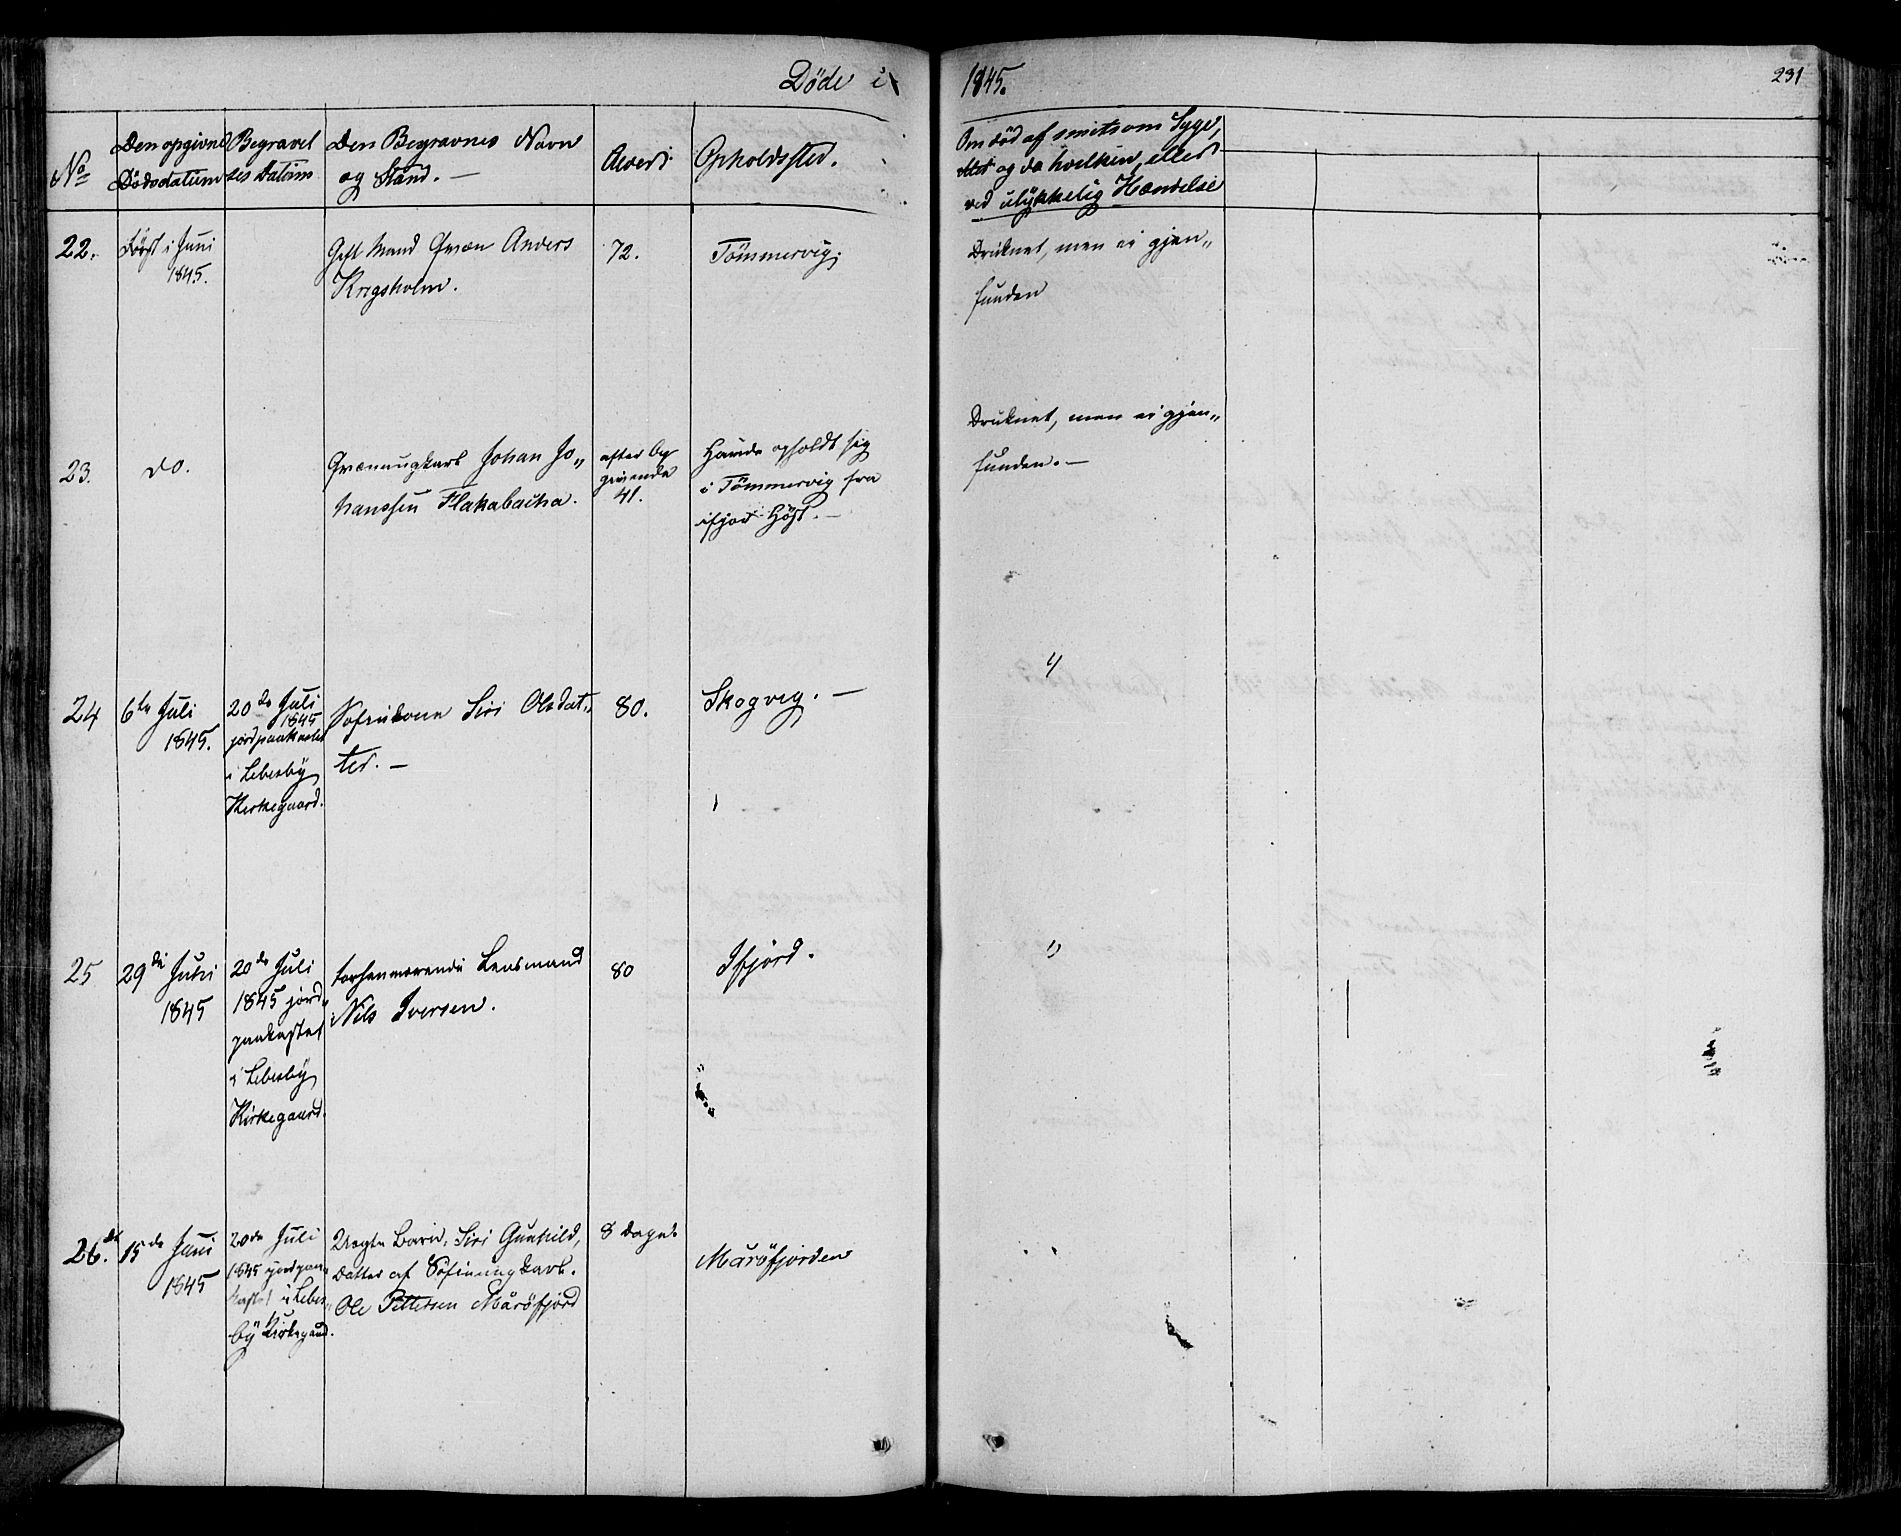 Döde i 1845.
231
No
Den opgivne Dödsdatum
Begravelses Datum
Den Begravnes Navn og Stand. —
Alder.
Opholdssted.
Om död af smitsom Syge, eller og da hvilken, eller ved ulykkelig Hændelse
22.
Först i Juni
1845.
Gift Mand Qvæn Anders
Krigsholm.
72.
Tömmervig.
Druknet, men ei gjen„
funden
23.
do.
Johan Jo„
hanssen Flakabacka.
efter Op
givende
41.
Havde opholdt sig
i Tömmervig fra
ifjor Höst. —
Druknet, men ei gjen„
funden. —
24
6te Juli
1845.
20de Juli
1845
jordpaakastet
i Lebesby
Kirkegaard.
Söfinkone Siri Olsdat„
ter. —
80.
Skogvig. —
"
25
29de Juni
1845
20de Juli
1845 jord„
paakastet
i Lebesby
Kirkegaard.
forhenværende Lensmand
Nils Iversen.
80
Ifjord.
"
26.
15de Juni
1845
20de Juli
1845 jordpaa„
kastet i Lebes„
by Kirkegaard.
Uægte Barn, Siri Gunhild,
Datter af Söfinungkarl.
Ole Pettersen Måröfjord
8 Dage.
Måröfjorden